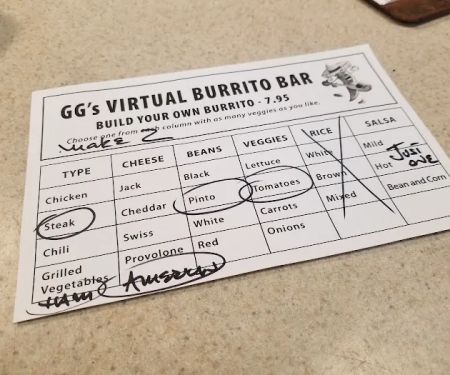 GG's VIRTUAL BURRITO BAR
BUILD YOUR OWN BURRITO - 7.95
Choose one from each column with as many veggies as you like.
make 2
TYPE CHEESE BEANS VEGGIES RICE SALSA
Chicken Jack Black Lettuce White Mild
Steak Cheddar Pinto Tomatoes Brown Hot Just one
Chili Swiss White Carrots Mixed Bean and Corn
Grilled Vegetables Provolone Red Onions
HAM American